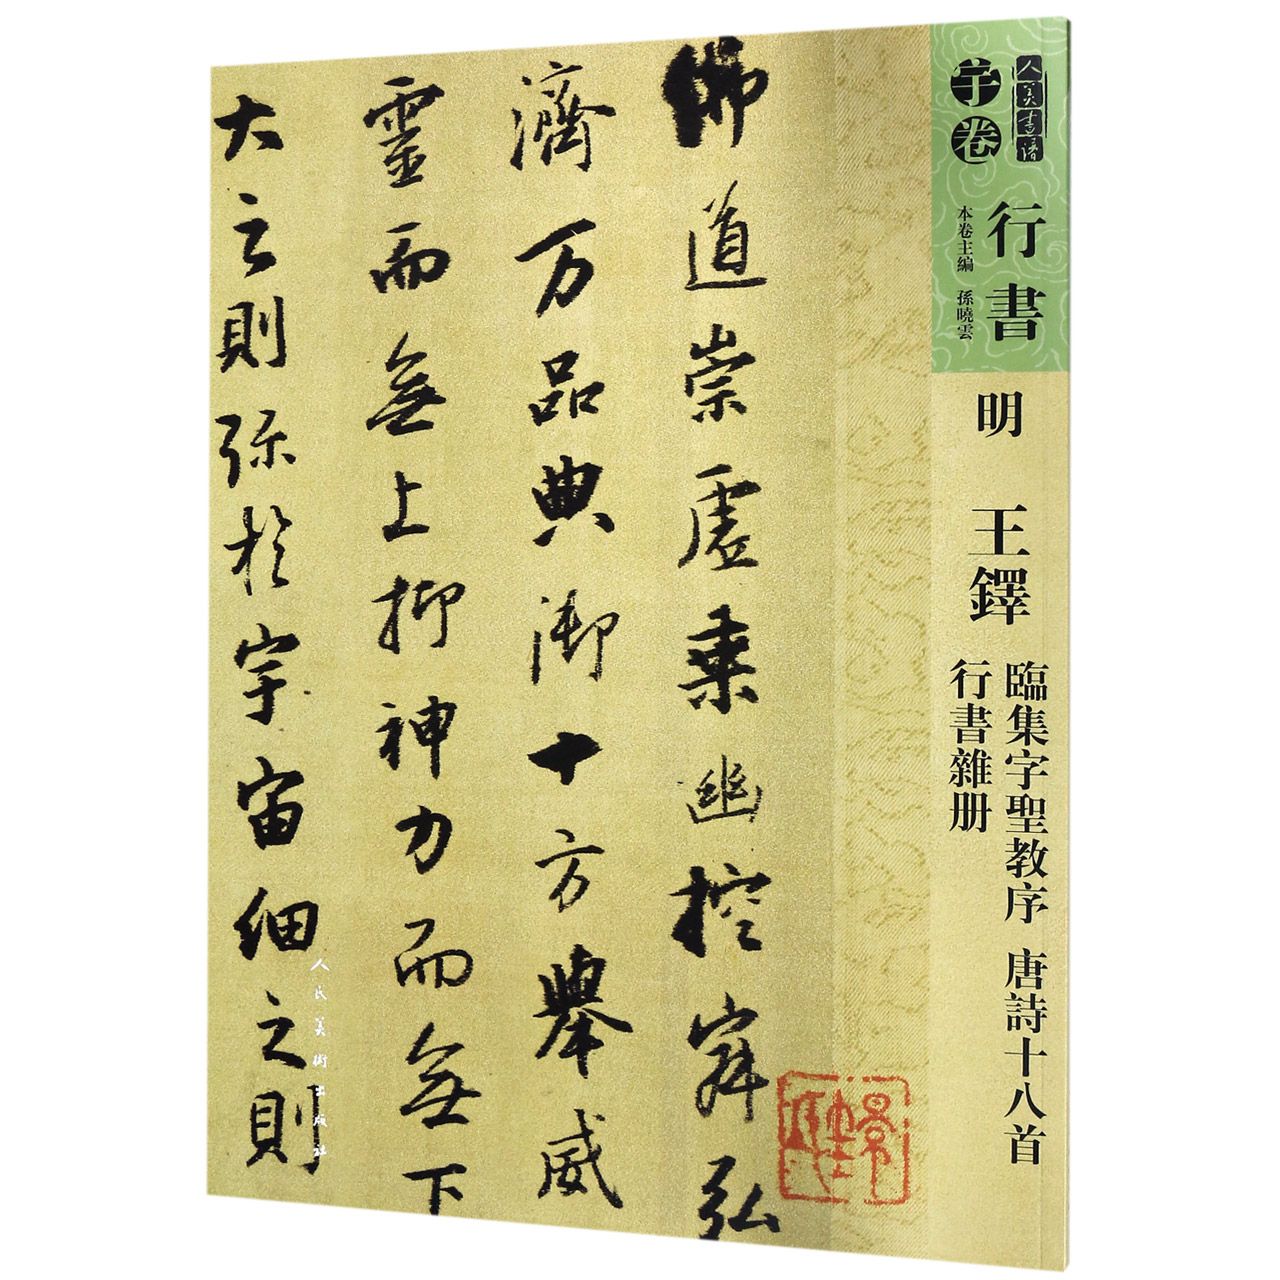 人美書譜
宇卷
行書
本卷主編 孫曉雲
明
王鐸
臨集字聖教序 唐詩十八首
行書雜册
佛道崇虛乘幽控寂弘
濟万品典御十方舉威
靈而無上抑神力而無下
大之則弥於宇宙細之則
人民美術出版社